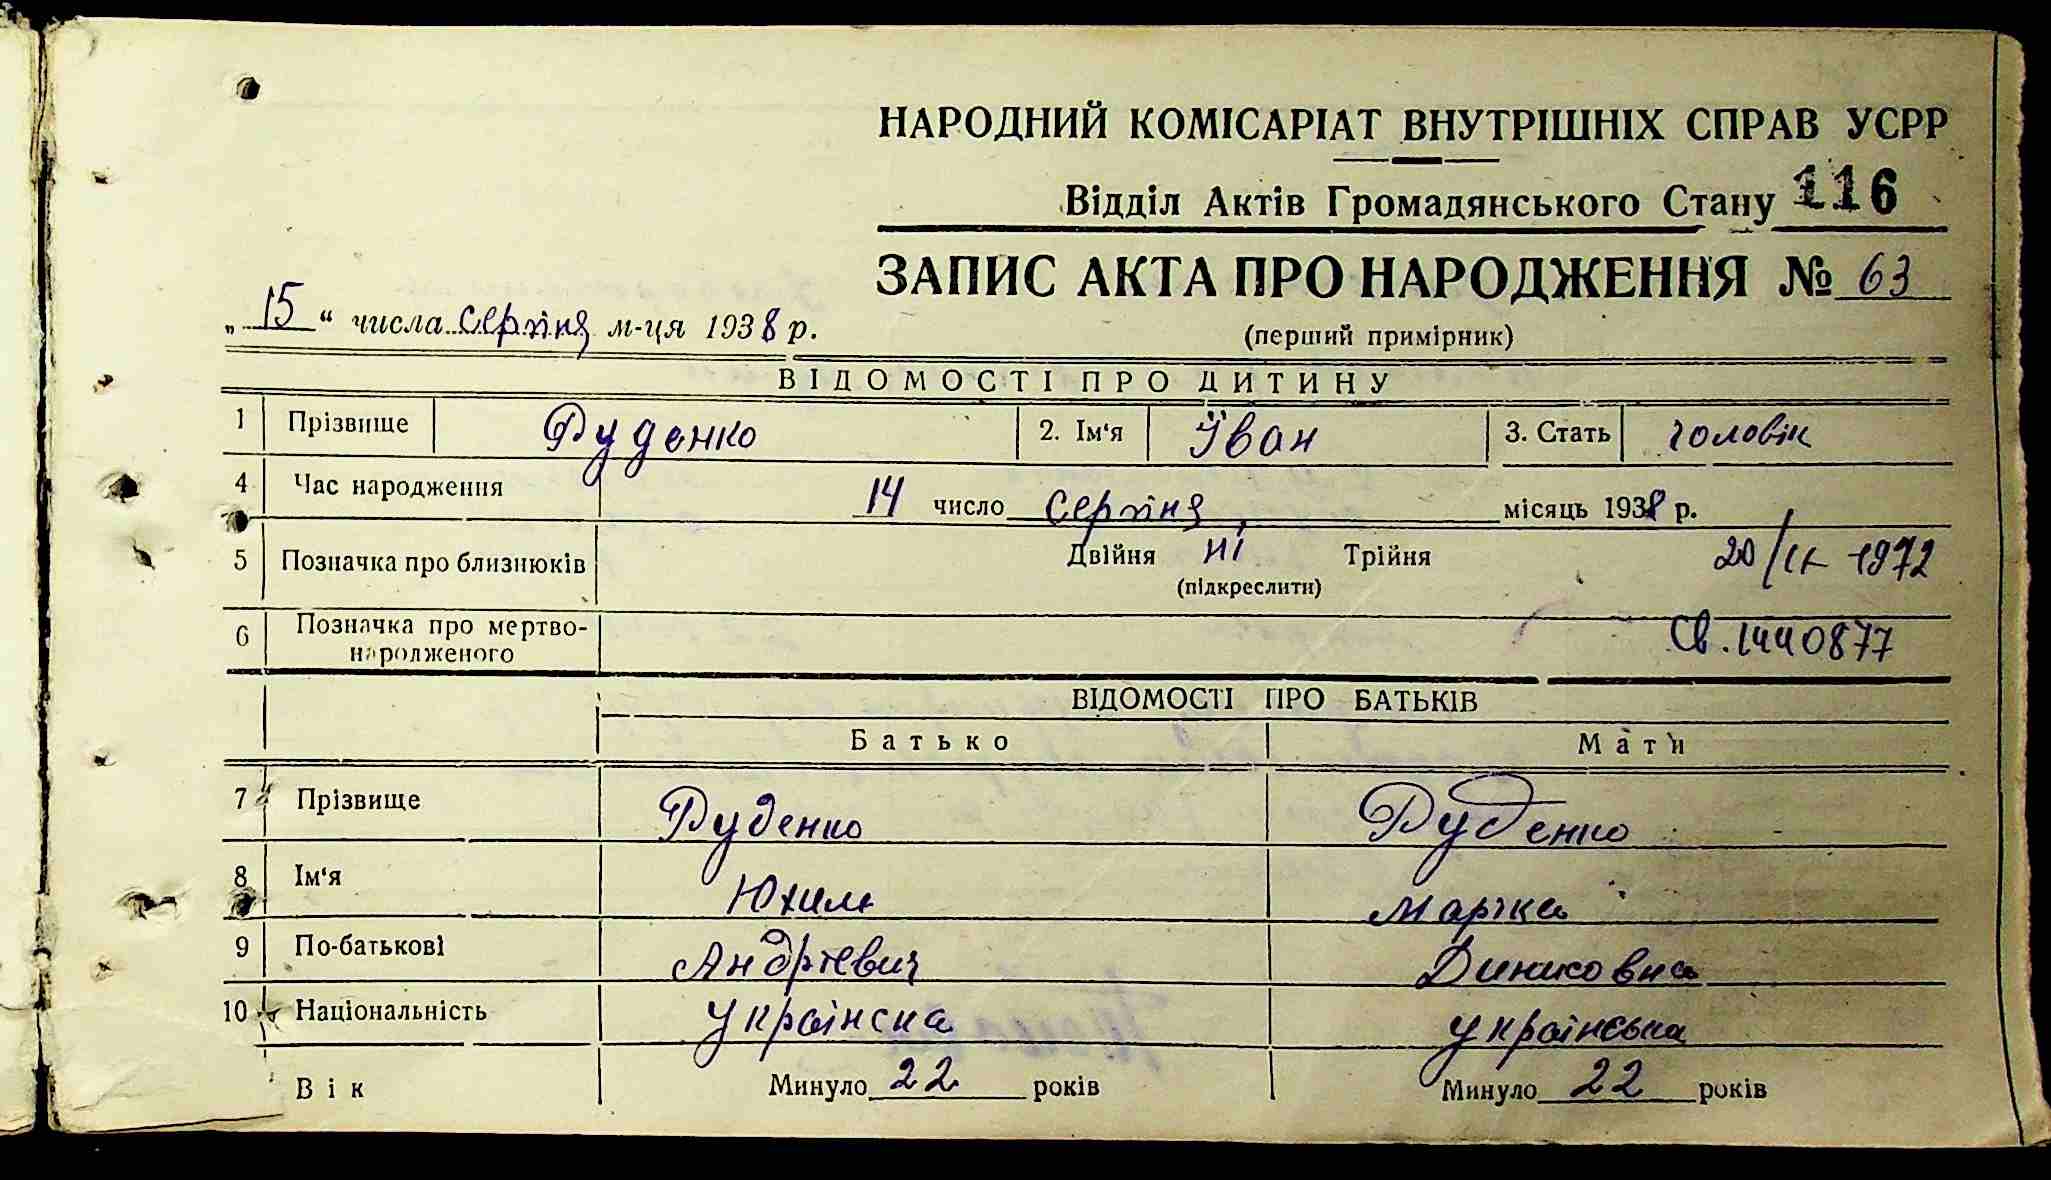 НАРОДНИЙ КОМІСАРІАТ ВНУТРІШНІХ СПРАВ УСРР
Відділ Актів Громадянського Стану 116
ЗАПИС АКТА ПРО НАРОДЖЕННЯ № 63
„15“ числа серпня м-ця 1938 р.
(перший примірник)
ВІДОМОСТІ ПРО ДИТИНУ
1 Прізвище Руденко 2. Ім'я Їван 3. Стать чоловік
4 Час народження 14 число серпня місяць 1938 р.
5 Позначка про близнюків Двійня ні Трійня 20/IX 1972
(підкреслити)
6 Позначка про мертво-
народженого Св. 1440877
ВІДОМОСТІ ПРО БАТЬКІВ
Батько Мати
7 Прізвище Руденко Руденко
8 Ім'я Юхим Марika
9 По-батькові Андрієвич Динисовна
10 Національність українска українська
Вік Минуло 22 років Минуло 22 років